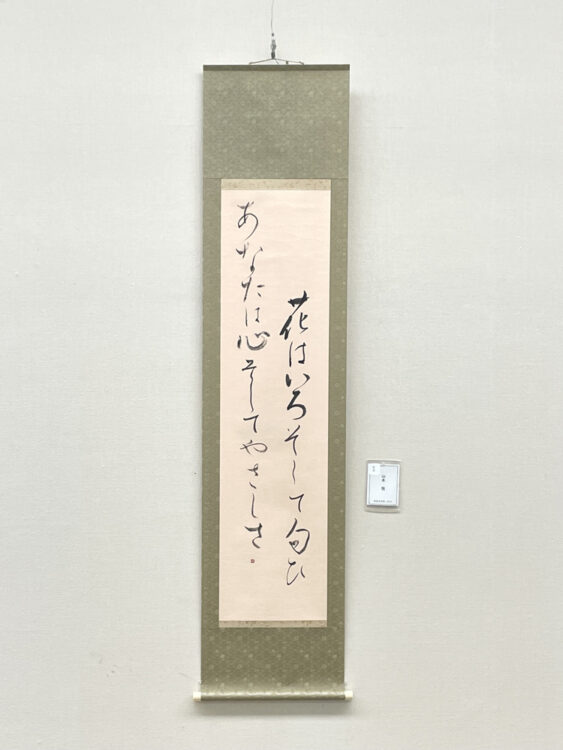 花はいろそして匂ひ
あなたは心そしてやさしさ